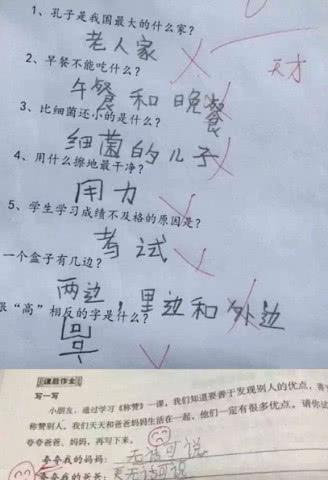 1、孔子是我国最大的什么家?
老人家
天才
2、早餐不能吃什么?
午餐和晚餐
3、比细菌还小的是什么?
细菌的儿子
4、用什么擦地最干净?
用力
5、学生学习成绩不及格的原因是?
考试
一个盒子有几边?
两边,里边和外边
“高”相反的字是什么?
课后作业
写一写
小朋友,通过学习《称赞》一课,我们知道要善于发现别人的优点,
称赞别人。我们天天和爸爸妈妈生活在一起,他们一定有很多优点。请你
夸夸爸爸、妈妈,再写下来。
夸夸我的妈妈:无话可说
夸我的爸爸:更无话可说